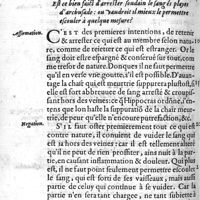 Est ce bien faict d'arrester soudain le sang és playes
d'arcbusade: ou vaudroit il mieux le permettre
escouler à quelque mesure?
Affirmation.
C'EST des premieres intentions, de retenir
& arrester ce qui est au membre selon natu-
re, comme de reietter ce qui est estranger. Or le
sang doit estre espargné & conserué sur tout, com-
me le thresor de nature. Donques ne permettons
qu'il en verse vne goutte, s'il est possible. D'auan-
tage la chair est meurtrie suppurera plustost,
aussi sera en asseurance de n'auoir
sang hors des veines: ce qu'Hippocrates condamne,
de peur qu'elle n'encoure putrefaction, &c.
Negation.
S'IL faut oster premierement tout ce qui est
contre nature, il conuient de vuider le sang qui
est ia hors des veines: il est tellement alteré
qu'il ne peut de rien profiter, ains nuit à la par-
tie, en causant inflammation & douleur. Qui plus
est, il ne faut point seulement permettre escouler
le sang, qui est hors de ses vaisseaux, mais aussi
partie de celuy qui continue à se vuider. Car la
partie n'en sera tant chargee, ne tant subiecte